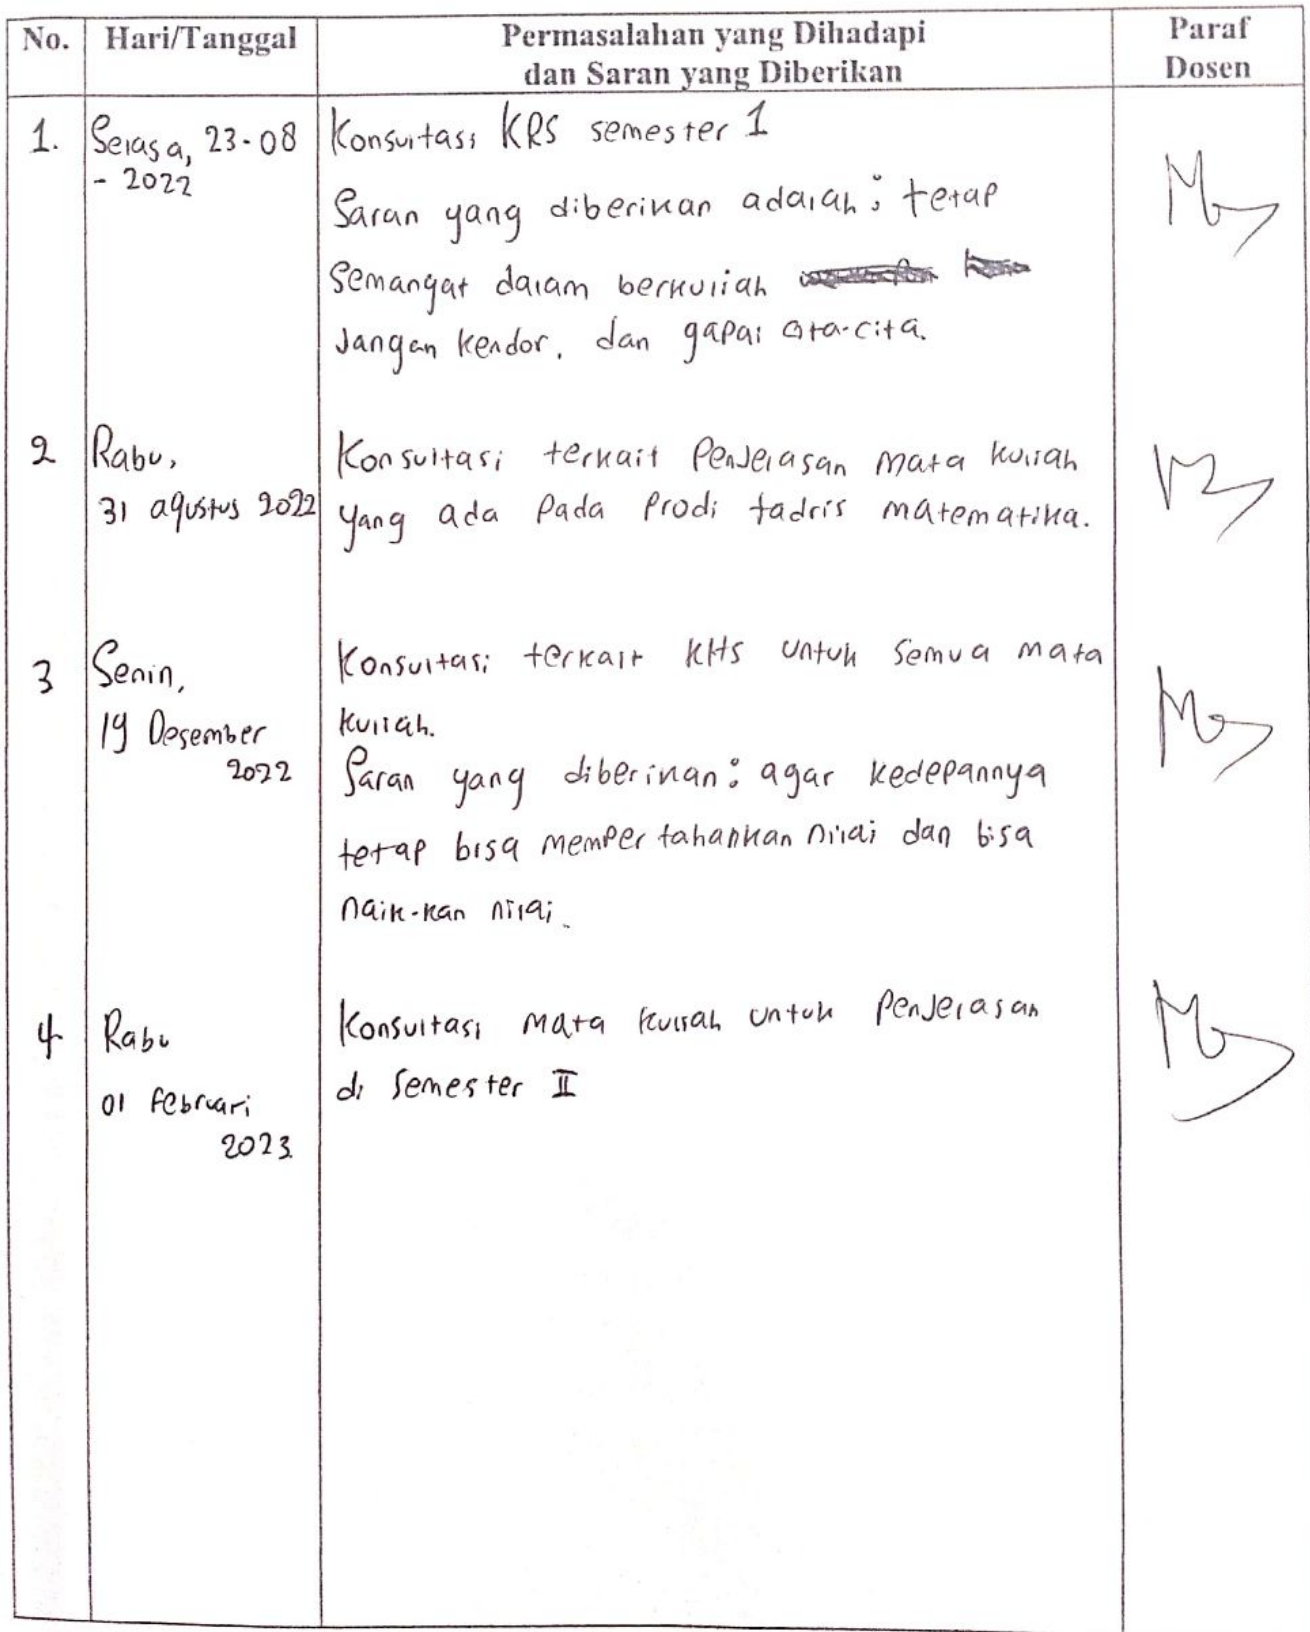 No. Hari/Tanggal Permasalahan yang Dihadapi dan Saran yang Diberikan Paraf Dosen
1. Selasa, 23-08
- 2022
Konsultasi KRS semester 1
Saran yang diberikan adalah: tetap
Semangat dalam berkuliah
Jangan kendor, dan gapai cita-cita.
2 Rabu,
31 agustus 2022
Konsultasi terkait Penjelasan mata kuliah
yang ada Pada Prodi tadris matematika.
3 Senin,
19 Desember
2022
Konsultasi terkait KHS untuk Semua mata
kuliah.
Saran yang diberikan: agar kedepannya
tetap bisa mempertahankan nilai dan bisa
naik-kan nilai.
4 Rabu
01 Februari
2023
Konsultasi Mata kuliah untuk Penjelasan
di Semester II